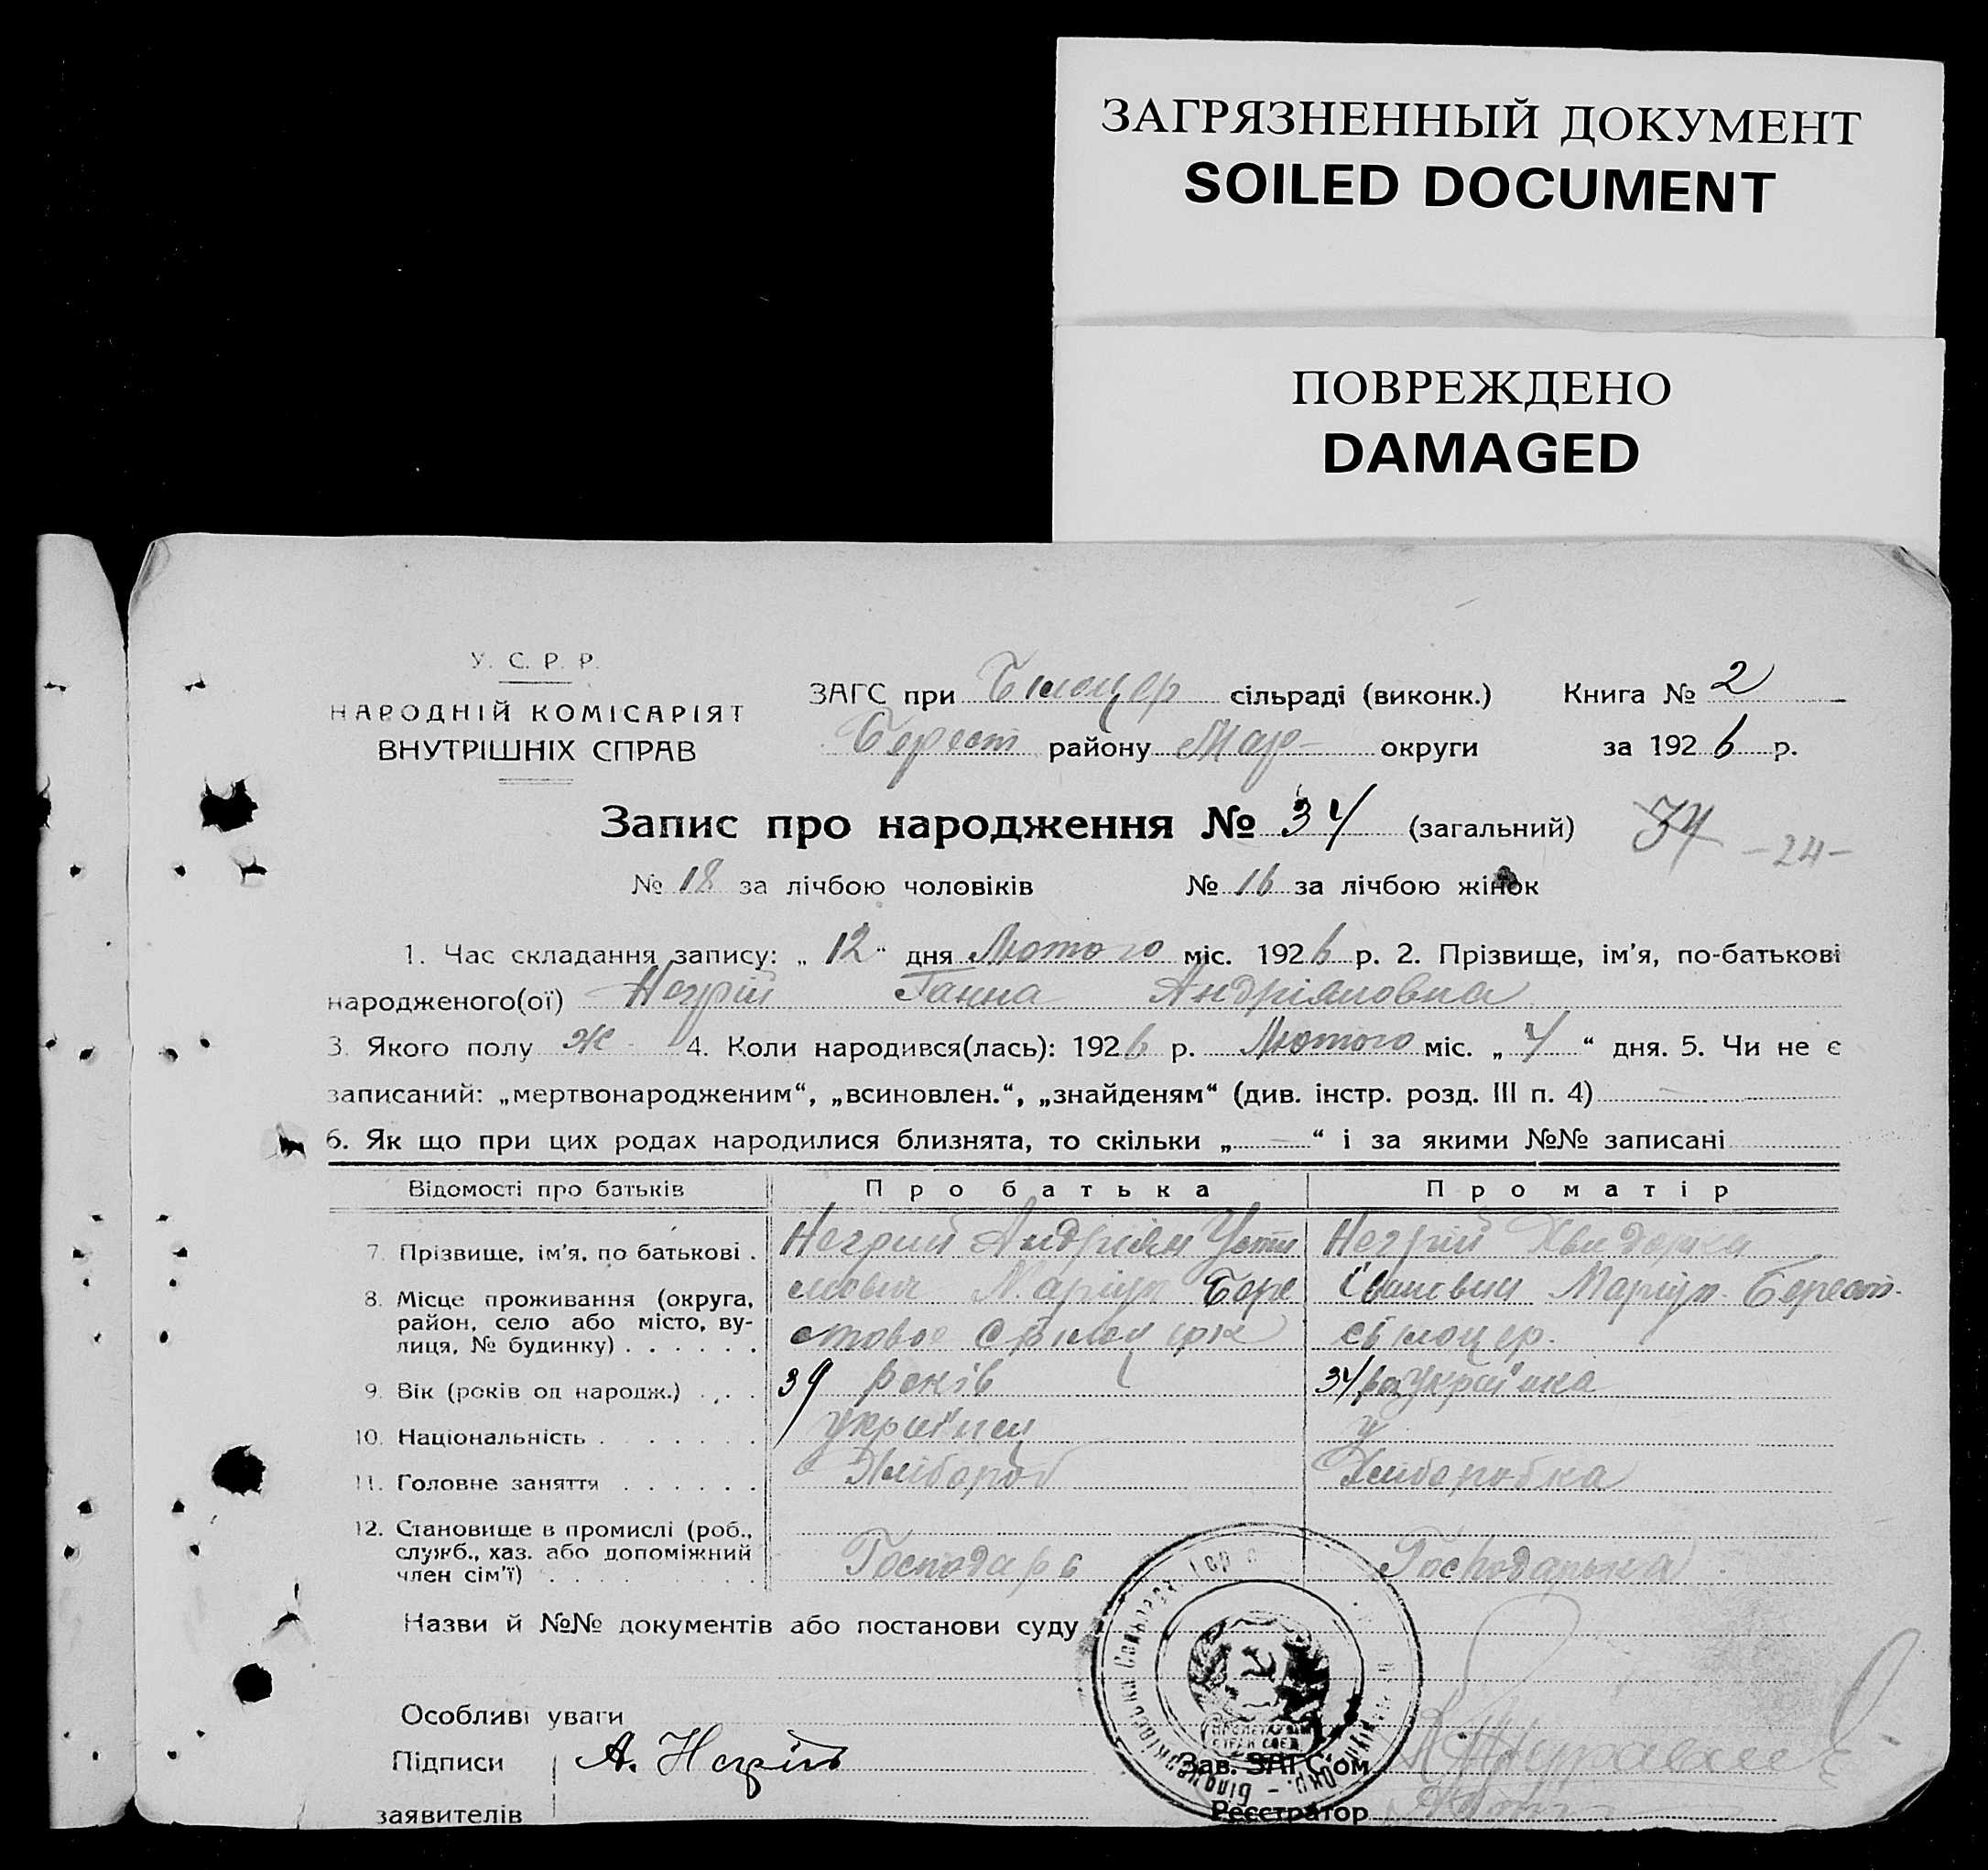 ЗАГРЯЗНЕННЫЙ ДОКУМЕНТ
SOILED DOCUMENT
ПОВРЕЖДЕНО
DAMAGED
У. С. Р. Р.
НАРОДНІЙ КОМІСАРІЯТ
ВНУТРІШНІХ СПРАВ
ЗАГС при Білоцер сільраді (виконк.) Книга № 2
Берест району Мар- округи за 1926 р.
Запис про народження № 34 (загальний) 34 -24-
№ 18 за лічбою чоловіків № 16 за лічбою жінок
1. Час складання запису: „ 12 " дня Лютого міс. 1926 р. 2. Прізвище, ім'я, по-батькові
народженого(ої) Негрій Ганна Андріяновна
3. Якого полу Ж 4. Коли народився(лась): 1926 р. Лютого міс. „ 4 " дня. 5. Чи не є
записаний: „мертвонародженим", „всиновлен.", „знайденям" (див. інстр. розд. III п. 4)
6. Як що при цих родах народилися близнята, то скільки „ — " і за якими №№ записані
Відомості про батьків Про батька Про матір
7. Прізвище, ім'я, по батькові . Негрий Андріян Усти Негрій Хведорка
8. Місце проживання (округа, мович Маріуп Бере Івановни Маріуп. Берест.
район, село або місто, ву- стовое
лиця, № будинку) . . . . . .
9. Вік (років од народж.) . . . 39 років 34 українка
10. Національність . . . . . . . українец у
11. Головне заняття . . . . . . Хлібороб Хліборобка
12. Становище в промислі (роб.,
служб., хаз. або допоміжний Господарь Господарька
член сім'ї) . . . . . . . . .
Назви й №№ документів або постанови суду
Особливі уваги
Підписи А. Негрій
Зав. ЗАГС'ом
заявителів
Реєстратор